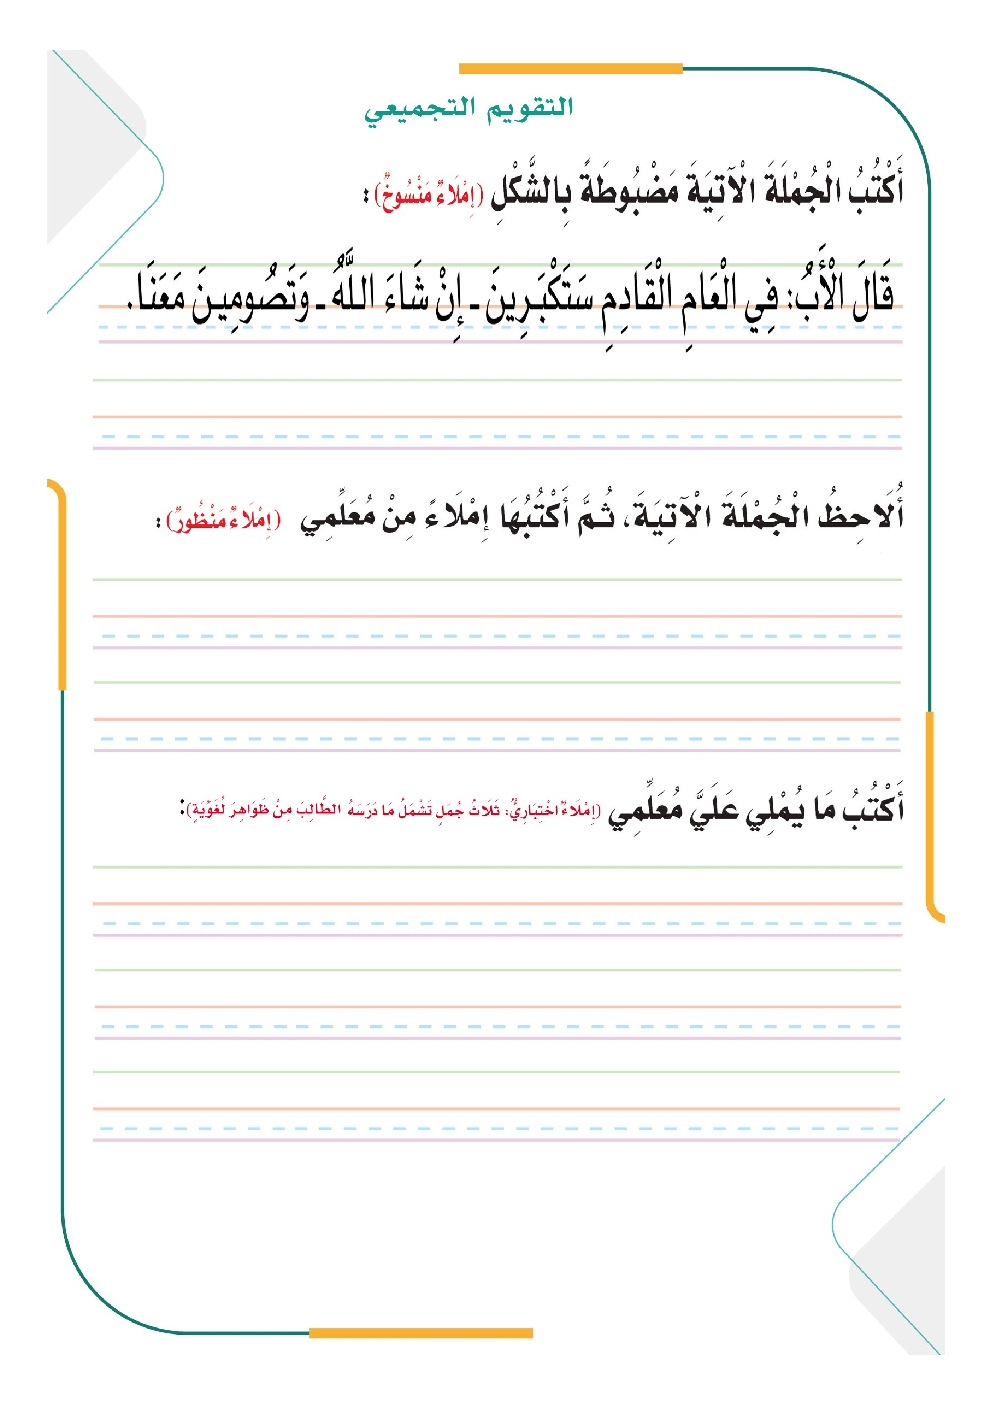 التقويم التجميعي
أَكْتُبُ الْجُمْلَةَ الْآتِيَةَ مَضْبُوطَةً بِالشَّكْلِ (إِمْلَاءٌ مَنْسُوخٌ) :
قَالَ الْأَبُ: فِي الْعَامِ الْقَادِمِ سَتَكْبَرِينَ - إِنْ شَاءَ اللَّهُ - وَتَصُومِينَ مَعَنَا.
أُلَاحِظُ الْجُمْلَةَ الْآتِيَةَ، ثُمَّ أَكْتُبُهَا إِمْلَاءً مِنْ مُعَلِّمِي (إِمْلَاءٌ مَنْظُورٌ) :
أَكْتُبُ مَا يُمْلِي عَلَيَّ مُعَلِّمِي (إِمْلَاءٌ اخْتِبَارِيٌّ: ثَلَاثُ جُمَلٍ تَشْمَلُ مَا دَرَسَهُ الطَّالِبَ مِنْ ظَوَاهِرَ لُغَوِيَّةٍ):